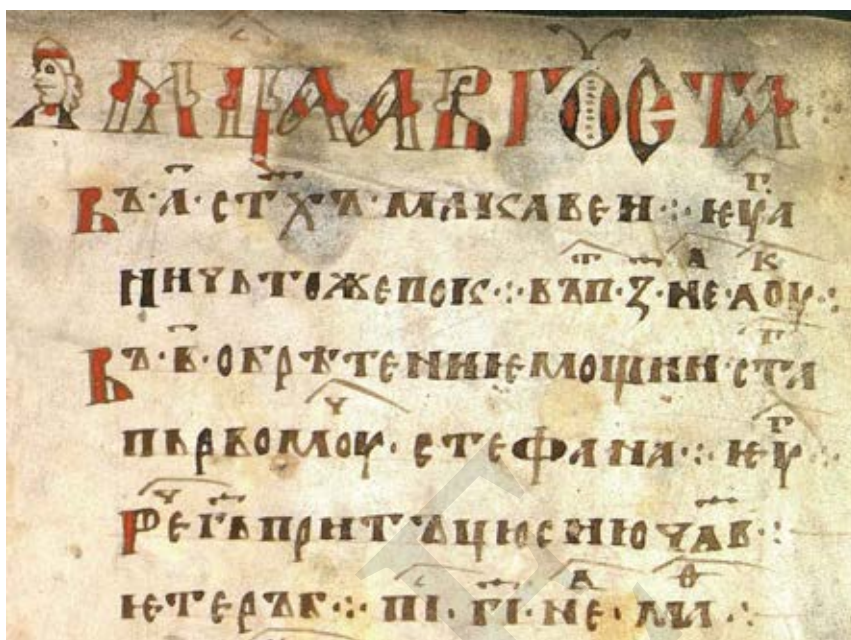 мца авгоста
въ · а҃ · ст҃хъ · маккавеи :· ѥу҃а
ничьтоже пок :· въ п · з҃ · не · а · оу :·
въ · в҃ · обрѣтениѥ мощии ст҃а
пьрвомоу · стефана :· ѥу҃
рече г҃ь притъцю сию чл҃в :·
ѥтеръ :· п і · г҃і · не · м л :·